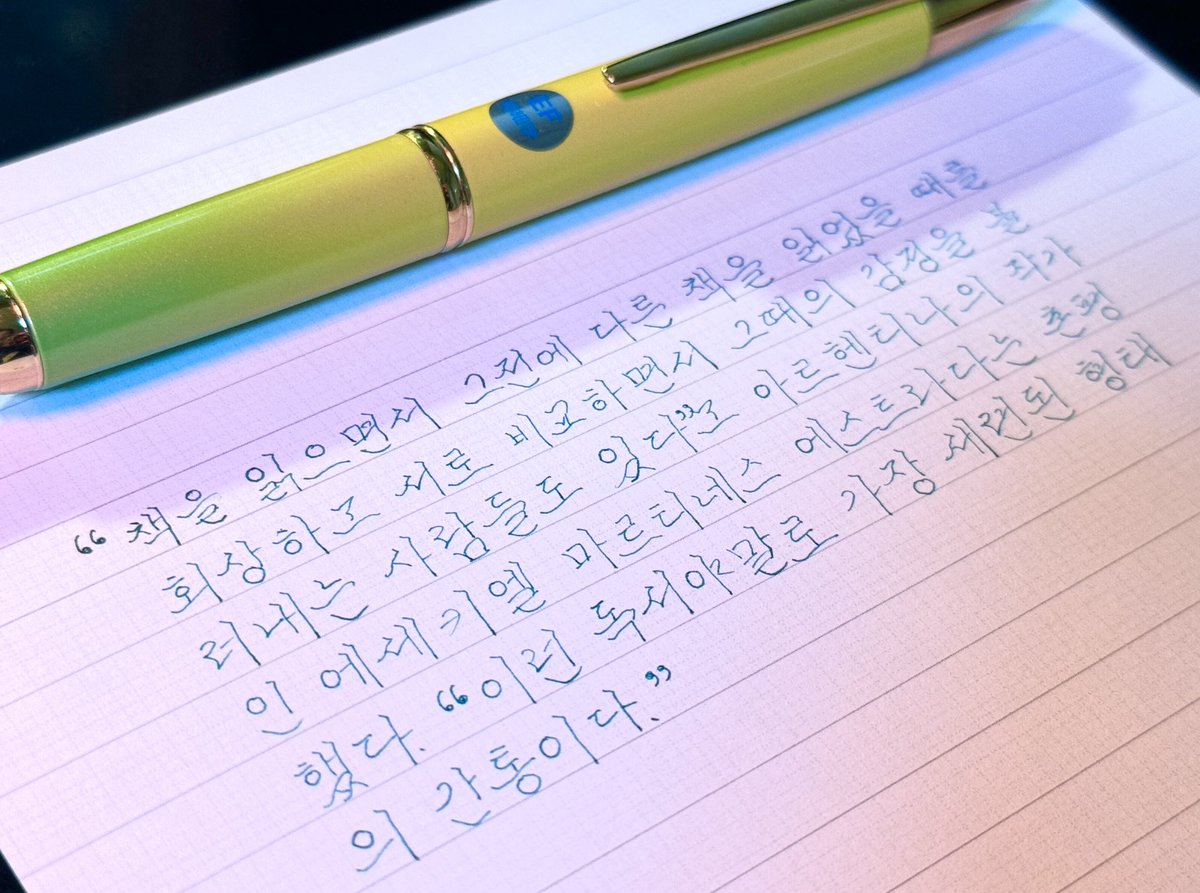 EF
“책을 읽으면서 그전에 다른 책을 읽었을 때를
회상하고 서로 비교하면서 그때의 감정을 불
러내는 사람들도 있다”고 아르헨티나의 작가
인 에세키엘 마르티네스 에스트라다는 촌평
했다. “이런 독서야말로 가장 세련된 형태
의 간통이다.”